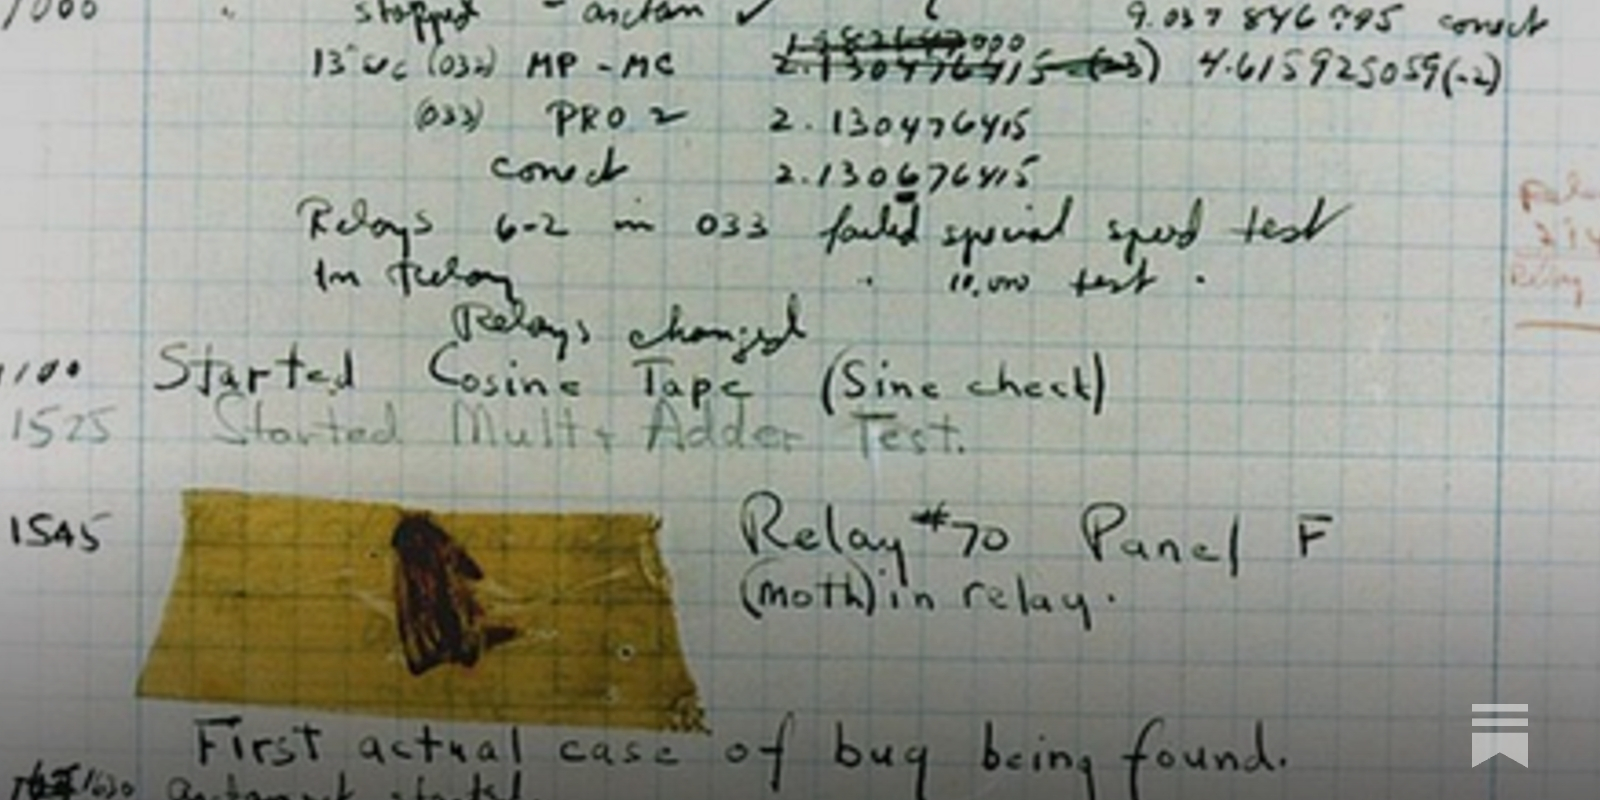 1000 " stopped - arctan ✓ 9.037 846 995 correct
13"uc (032) MP - MC 1.982647000 2.130476415 (-3) 4.615925059(-2)
(033) PRO 2 2.130476415
correct 2.130676415
Relays 6-2 in 033 failed special speed test
In Relay " 10.000 test .
Relays changed
Relay
1100 Started Cosine Tape (Sine check)
1525 Started Mult + Adder Test.
1545 Relay #70 Panel F
(moth) in relay.
First actual case of bug being found.
1630 antangent started.